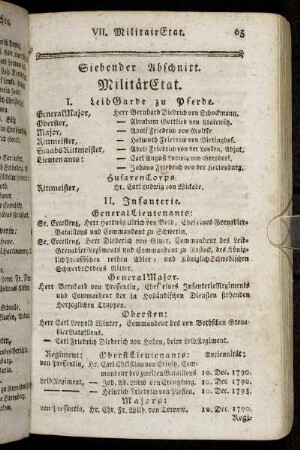 VII. MilitairEtat. 65
Siebender Abschnitt.
MilitärEtat.
I. LeibGarde zu Pferde.
GeneralMajor, Herr Bernhard Diedrich von Schuckmann,
Obrister, — Abraham Gottlieb von
Major, — Adolf Friedrich von
Rittmeister, — Helmuth Friedrich von
StaabsRittmeister, — Adolf Friedrich von der Lanken, Abjut,
Lieutenants: — Carl August Ludwig von Gersdorf,
— Johann Friedrich von der Kettenburg.
HusarenCorps.
Rittmeister, Hr. Carl Ludwig von Wickede.
II. Infanterie.
GeneralLieutenants:
Se. Excellenz, Herr Hartwig Ulrich von Both, Chef eines Grenadier-
Bataillons und Commandeur zu Schwerin.
Se. Excellenz, Herr Diederich von Gluer, Commandeur des Leib-
GrenadierRegiments und Commandeur zu Rostock, des König-
lichPreussischen rothen Adler- und KöniglichSchwedischen
SchwerdtOrdens Ritter.
GeneralMajor.
Herr Bernhard von Pressentin, Chef eines InfanterieRegiments
und Commandeur der in Holländischen Diensten stehenden
Herzoglichen Truppen.
Obersten:
Herr Carl Leopold Winter, Commandeur des von Bothschen Grena-
dierBataillons.
— Carl Friedrich Diederich von Hafen, beim LeibRegiment.
Regiment: OberstLieutenants: Anciennität:
von Pressentin, Hr. Carl Christian von Erixty, Com-
mandeur des zweiten Bataillons. 10. Dec. 1790.
LeibRegiment, — Joh. Ad. Ludw. von Creutzburg. 10. Dec. 1790.
— Heinrich Christian von Plessen. 10. Dec. 1793.
Majors:
von Pressentin, Hr. Chr. Fr. Wilh. von 10. Dec. 1790.
Regi-